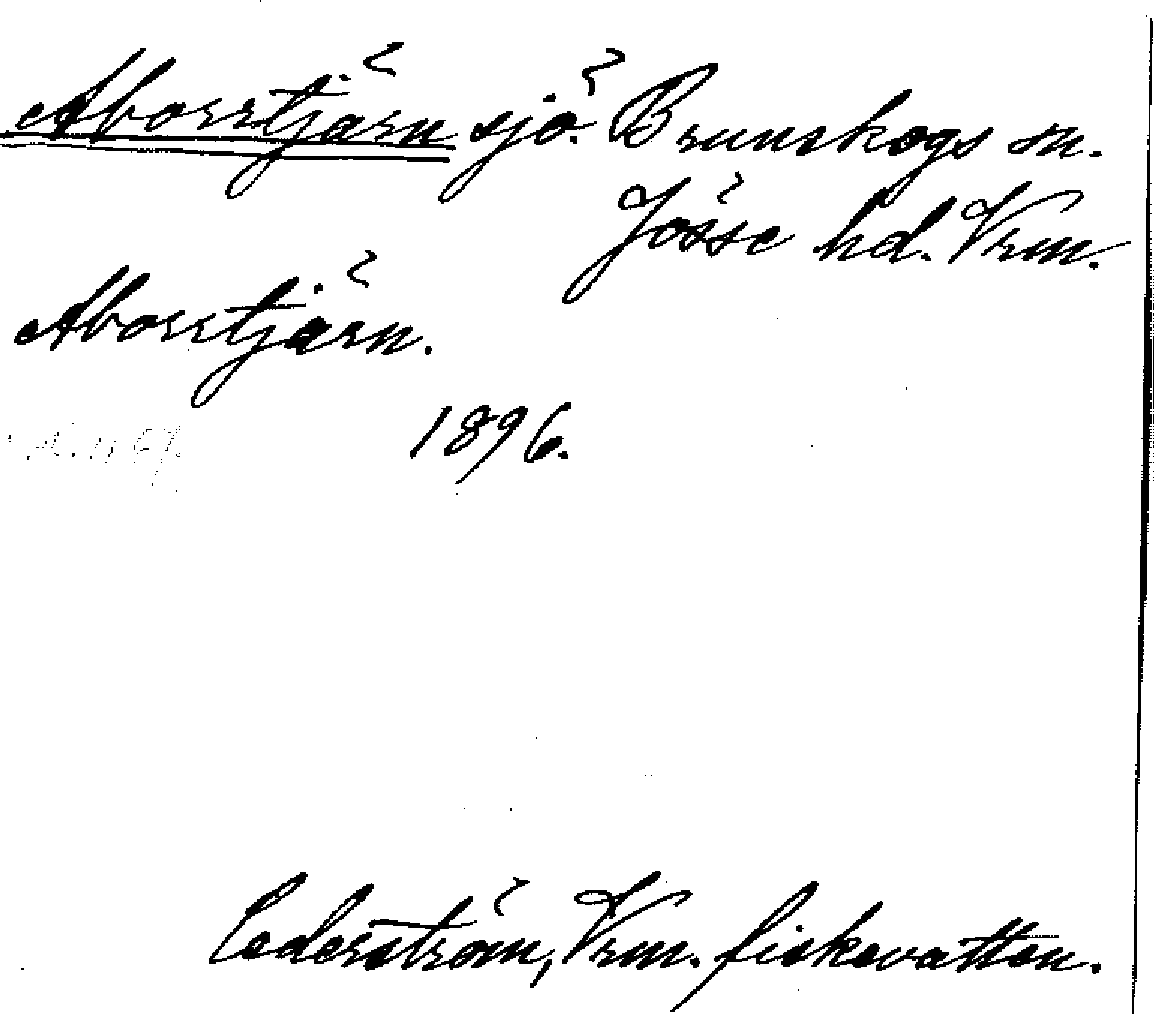 Aborrtjärn sjö. Brunskogs sn.
Jösse hd. Vrm.
Aborrtjärn.
1896.
Cederström, Vrm. fiskevatten.